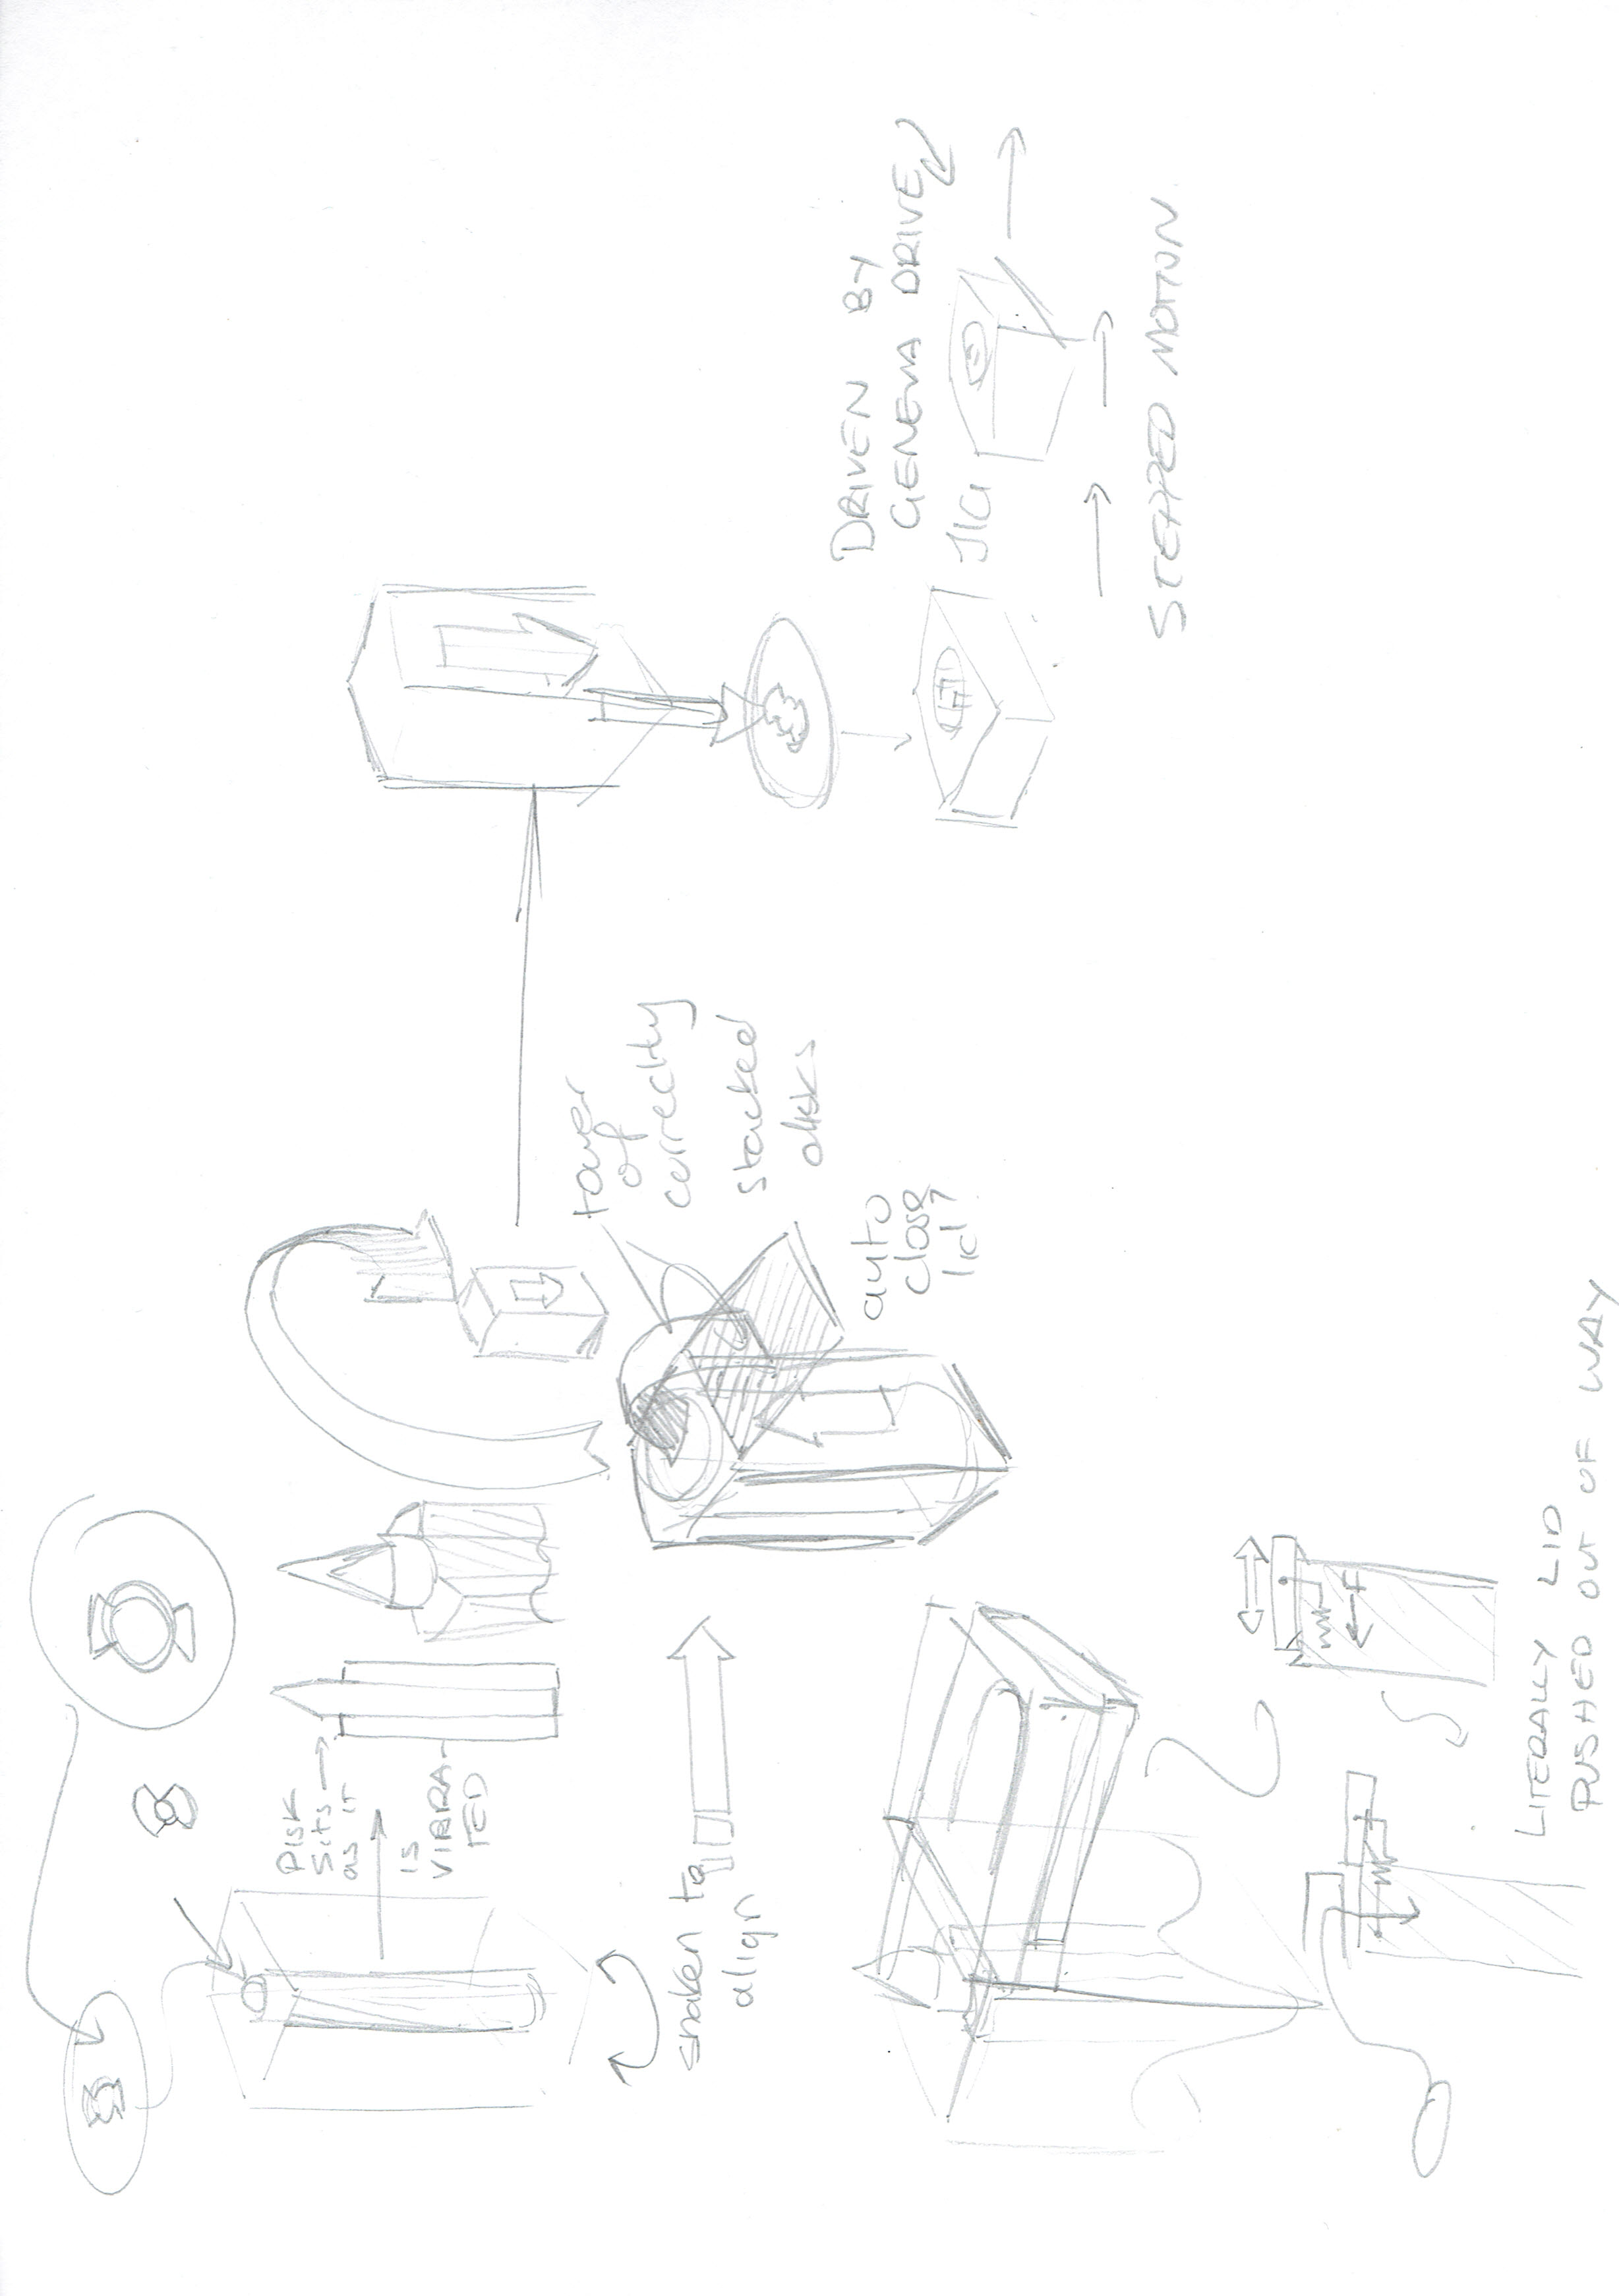 DISK
sits
as it
IS
VIBRA-
TED
shaken to
align
tower
of
correctly
stacked
disks
auto
close
lid?
DRIVEN BY
GENEVA DRIVE
JIG
STEPPED MOTION
F
LITERALLY LID
PUSHED OUT OF WAY